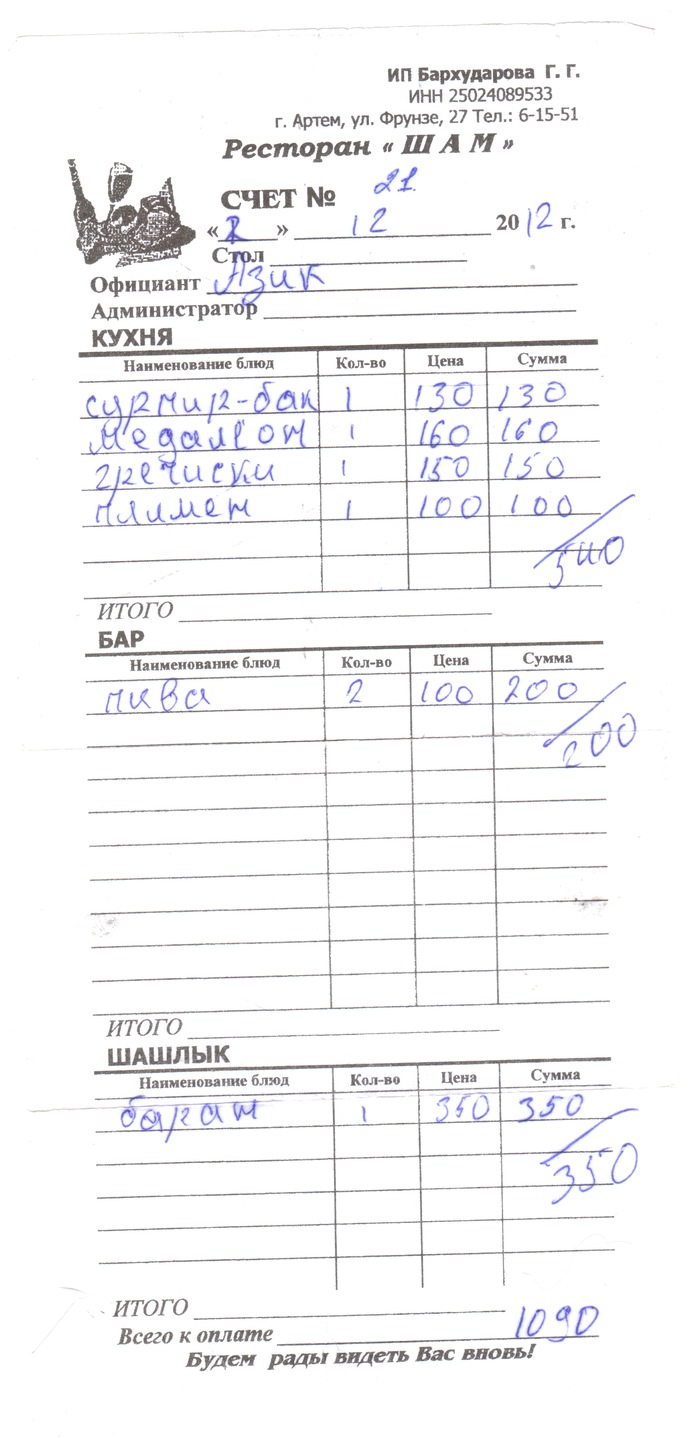 ИП Бархударова Г. Г.
ИНН 25024089533
г. Артем, ул. Фрунзе, 27 Тел.: 6-15-51
Ресторан « Ш А М »
СЧЕТ № 21
« » 12 2012 г.
Стол
Официант Азик
Администратор
КУХНЯ
Наименование блюд Кол-во Цена Сумма
сурмир-бак 1 130 130
медалион 1 160 160
гречиски 1 150 150
плимен 1 100 100
540
ИТОГО
БАР
Наименование блюд Кол-во Цена Сумма
пива 2 100 200
200
ИТОГО
ШАШЛЫК
Наименование блюд Кол-во Цена Сумма
баран 1 350 350
350
ИТОГО
Всего к оплате 1090
Будем рады видеть Вас вновь!